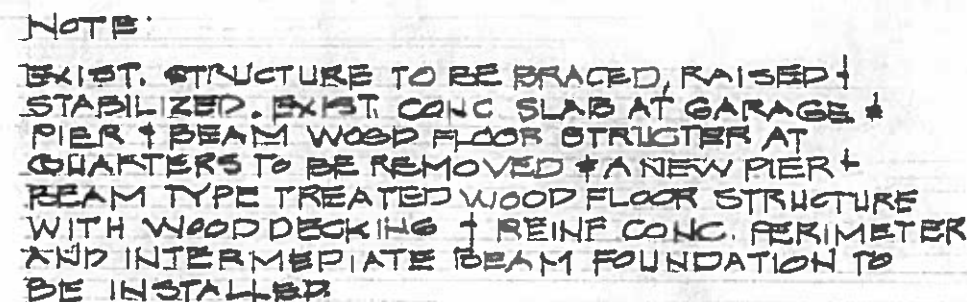 NOTE:
EXIST. STRUCTURE TO BE BRACED, RAISED &
STABILIZED. EXIST. CONC SLAB AT GARAGE &
PIER & BEAM WOOD FLOOR STRUCTER AT
QUARTERS TO BE REMOVED & A NEW PIER &
BEAM TYPE TREATED WOOD FLOOR STRUCTURE
WITH WOOD DECKING & REINF CONC. PERIMETER
AND INTERMEDIATE BEAM FOUNDATION TO
BE INSTALLED.